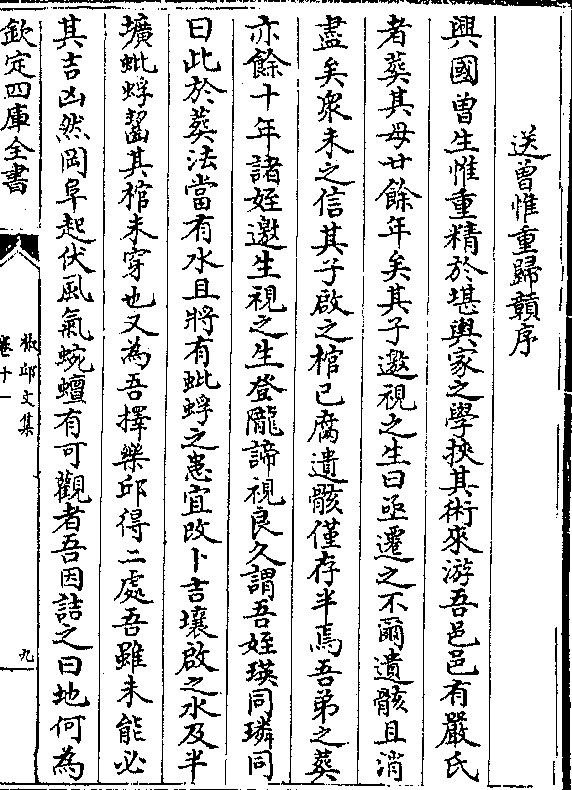 送曾惟重歸贛序
興國曾生惟重精於堪輿家之學挾其術來游吾邑邑有嚴氏
者葬其母廿餘年矣其子邀視之生曰亟遷之不爾遺骸且消
盡矣衆未之信其子啟之棺已腐遺骸僅存半焉吾弟之葬
亦餘十年諸姪邀生視之生登隴諦視良久謂吾姪瑛同璘同
曰此於葬法當有水且將有蚍蜉之患宜改卜吉壤啟之水及半
壙蚍蜉齧其棺未穿也又為吾擇樂邱得二處吾雖未能必
其吉凶然岡阜起伏風氣蜿蟺有可觀者吾因詰之曰地何為
欽定四庫全書
文集
卷十一
九